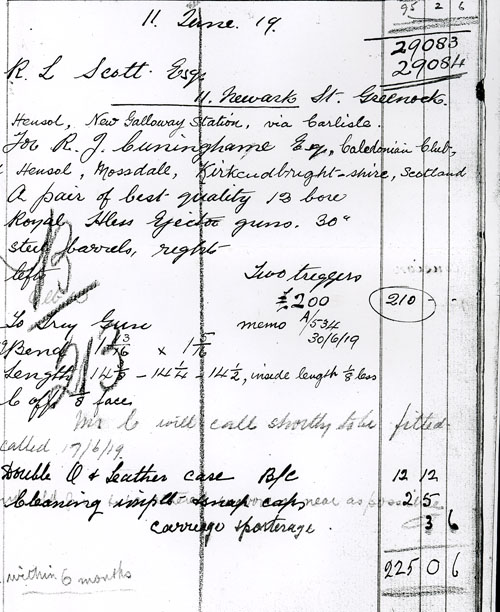 95 2 6
11. June. 19.
29083
29084
R. L Scott. Esq.
11. Newark St. Greenock.
Hensol, New Galloway Station, via Carlisle.
For R. J. Cuninghame Esq, Caledonian Club,
Hensol, Mossdale, Kirkcudbright-shire, Scotland
A pair of best quality 12 bore
Royal Hless Ejector guns. 30"
steel barrels, right
left
Two triggers
£200 210 -
memo A/534
30/6/19
Bend 1 13/16 x
Length 14 1/8 - 14 1/4 - 14 1/2, inside length 1/8 less
C off 1/8 face
213
Mr C will call shortly to be fitted
called 17/6/19.
Double O & Leather case B/C 12 12
Cleaning implts snap caps 2 5
near as possible
carriage sporterage. 3 6
225 0 6
within 6 months